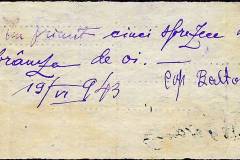 Am primit cinci sprezece
brânza de oi. —
19/VI 943